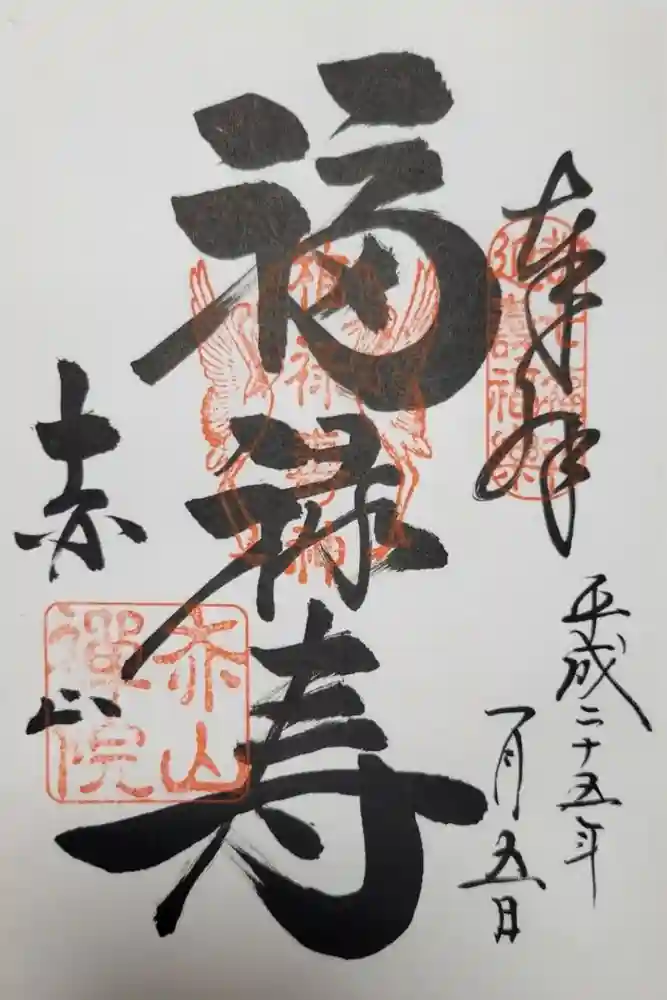 奉拝
平成二十五年
一月五日
福禄寿
福禄寿神
赤山
赤山
禅院